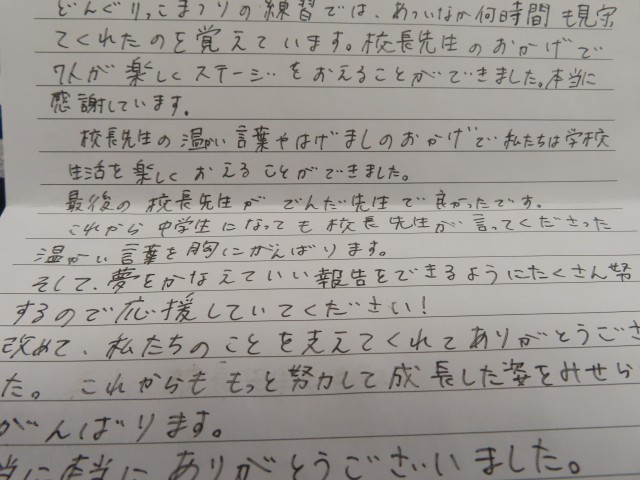 どんぐりっこまつりの練習では、あついなか何時間も見守
てくれたのを覚えています。校長先生のおかげで
7人が楽しくステージをおえることができました。本当に
感謝しています。
校長先生の温かい言葉やはげましのおかげで私たちは学校
生活を楽しくおえることができました。
最後の校長先生がでんだ先生で良かったです。
これから中学生になっても校長先生が言ってくださった
温かい言葉を胸にがんばります。
そして、夢をかなえていい報告をできるようにたくさん努
するので応援していてください！
改めて、私たちのことを支えてくれてありがとうござ
た。これからももっと努力して成長した姿をみせら
がんばります。
当に本当にありがとうございました。